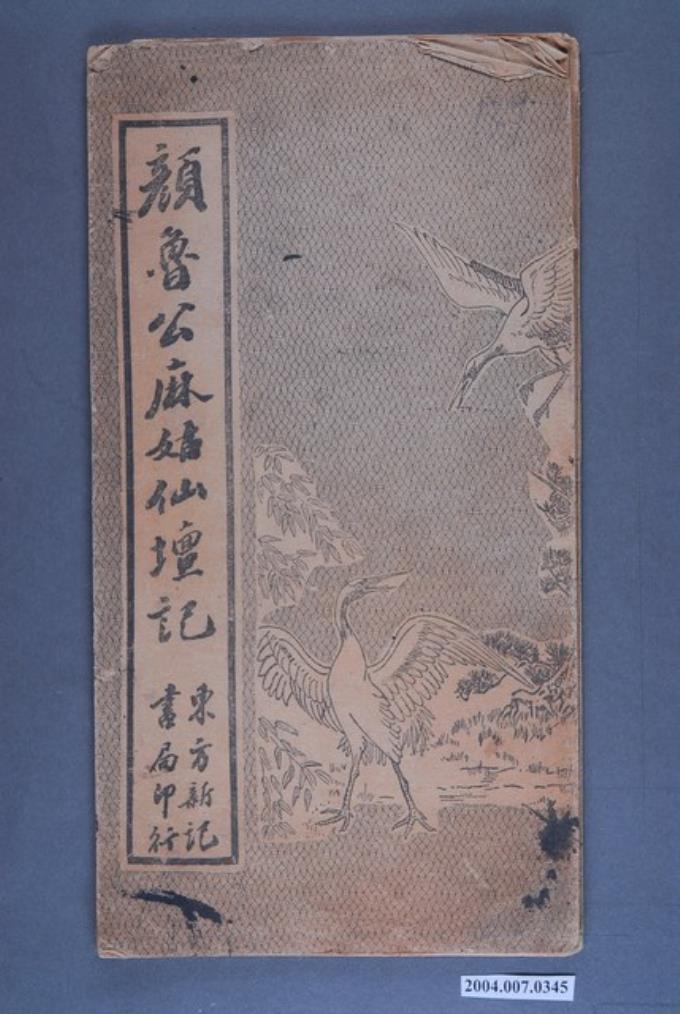 顏魯公麻姑仙壇記
東方新記
書局印行
2004.007.0345